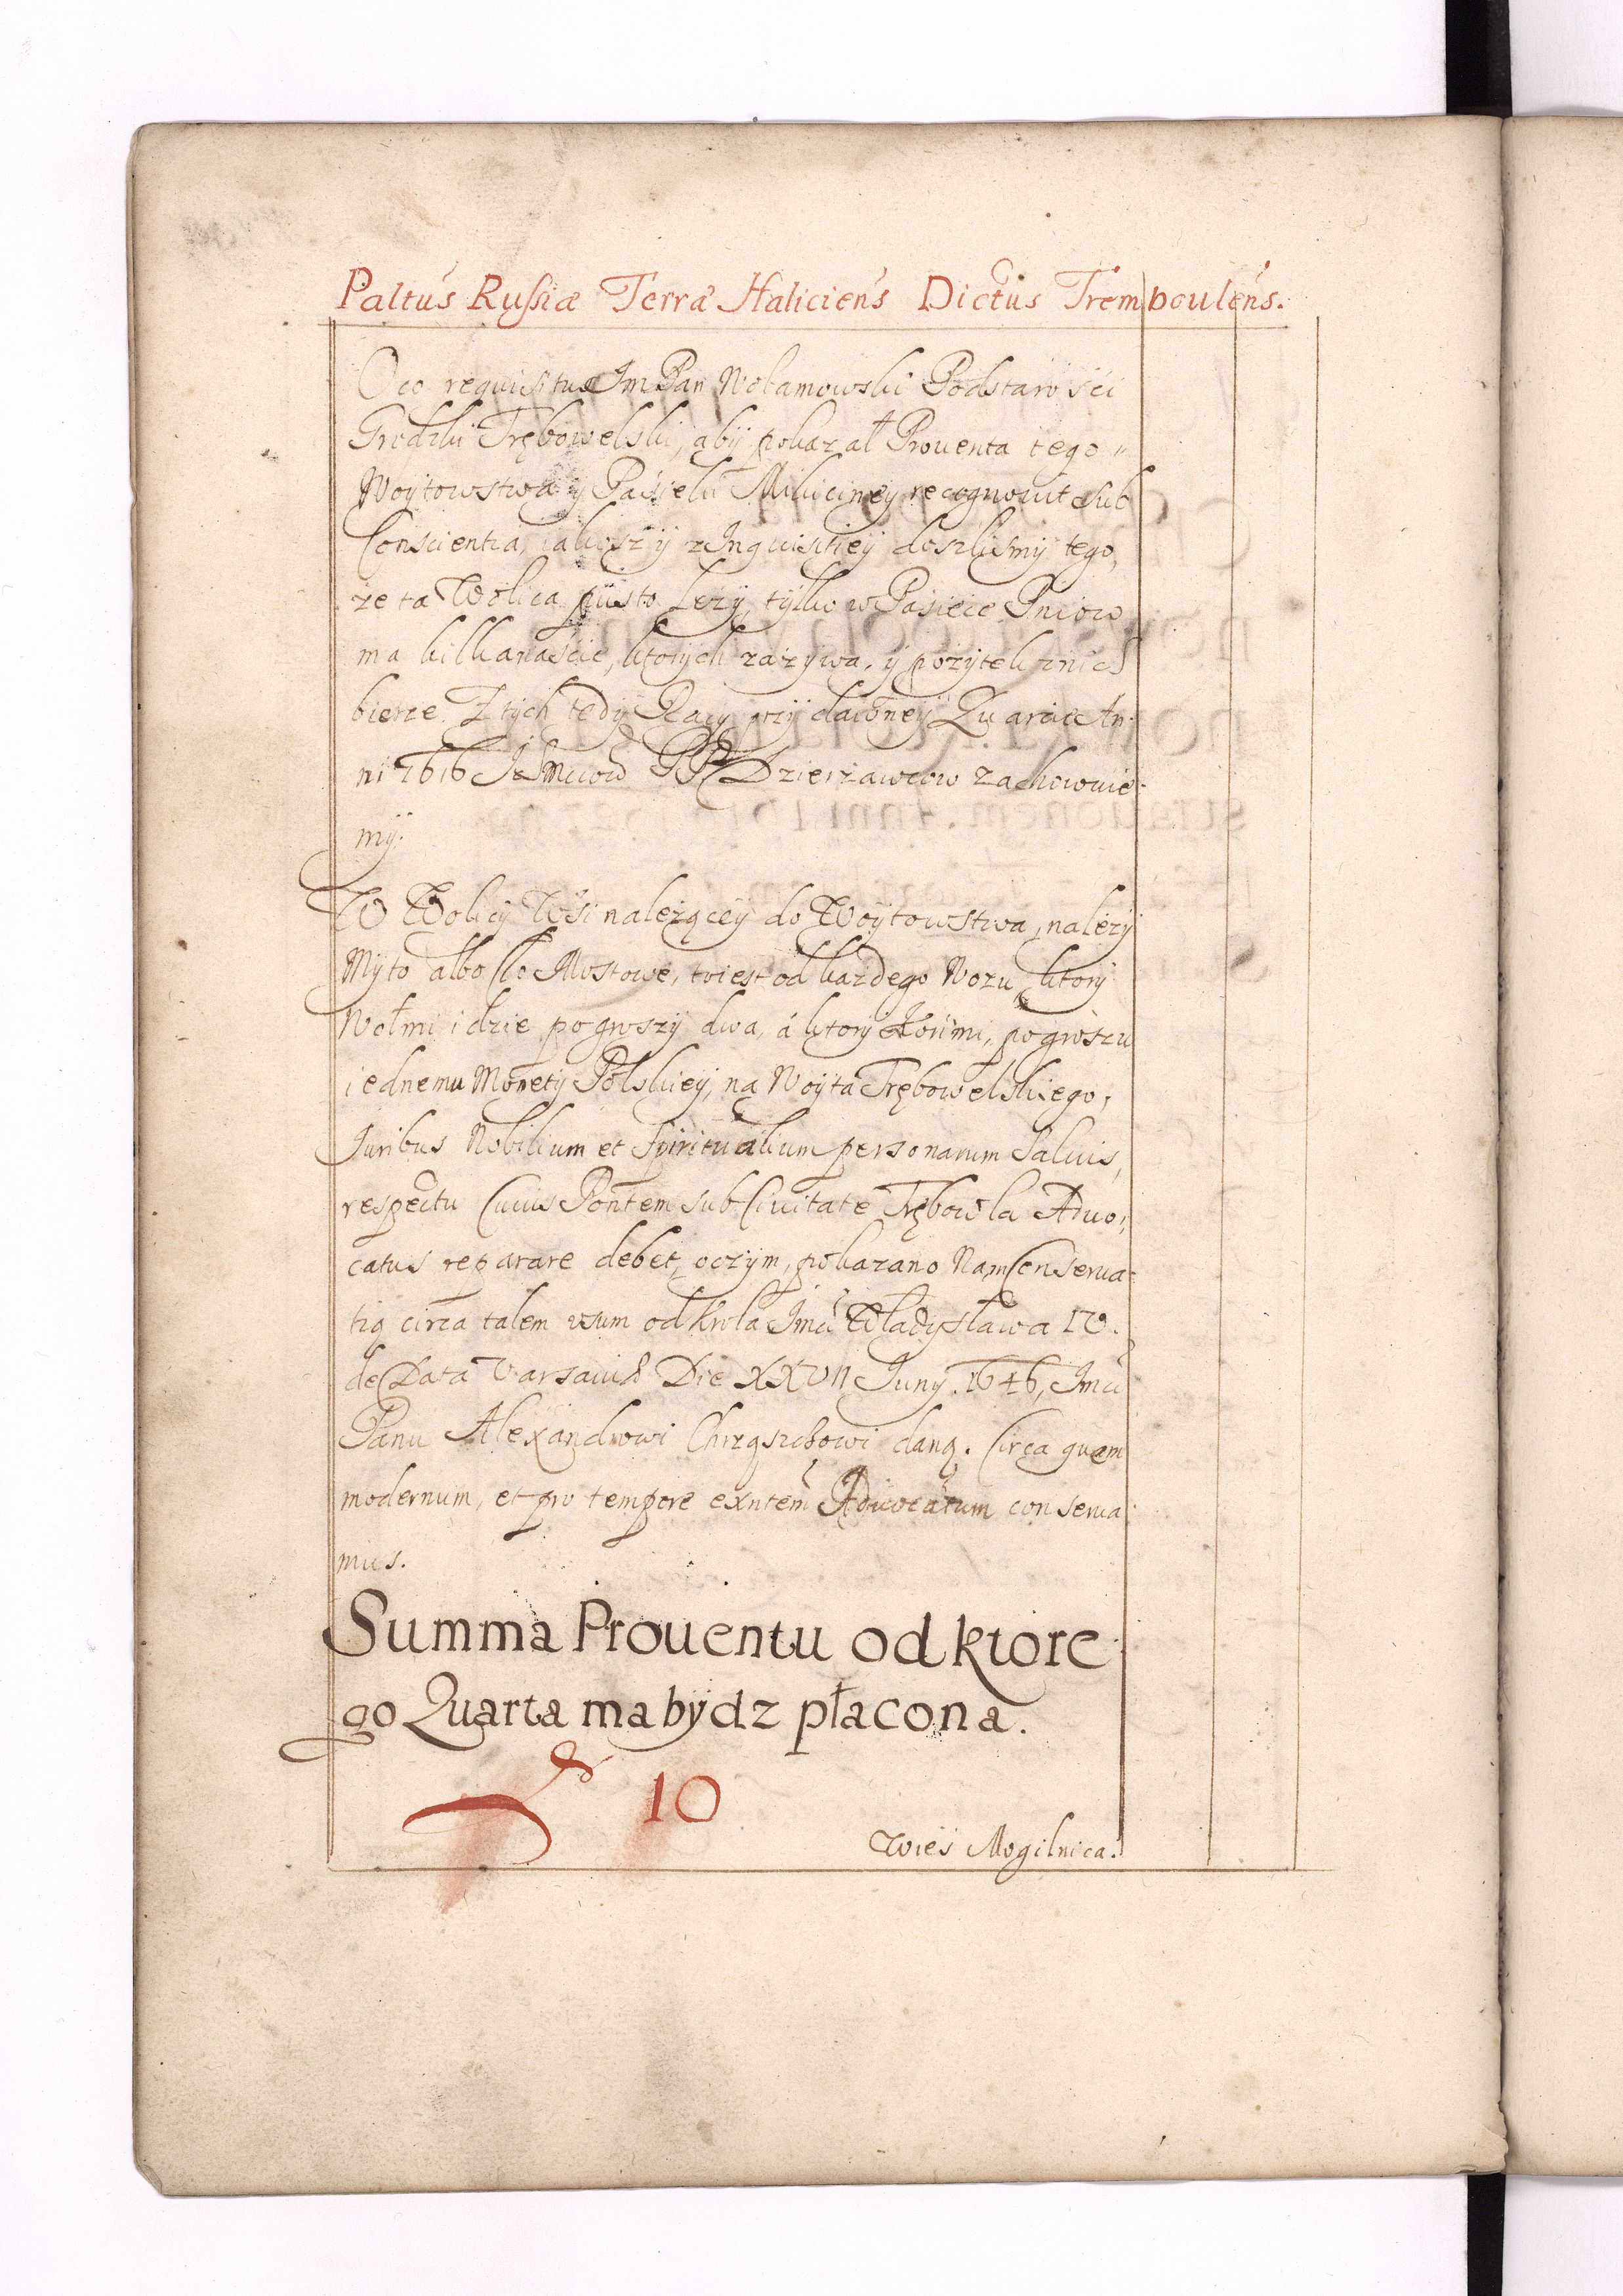 Paltus Russiæ Terræ Haliciens Dictus Trembouleńs.
Oco requisitus Jm Pan Wołamowski Podstarości
Grodzki Trębowelski, abÿ pokazał Prouenta tego
Woÿtowstwa ÿ Pasieki Mikiciney recognouit sub
Conscientia, iakosz ÿ z Inquisitieÿ doszlismÿ tego,
ze ta Wolica pusto Lezÿ, tÿlko w Pasiece Pniow
ma kilkanaście, ktorÿch zazÿwa, ÿ pozÿtek z nich
bierze. Z tÿch tedÿ Racÿ przÿ dawneÿ Quarcie An
ni 1616 Ich Mciow PP. Dzierzawcow zachowuie
mÿ.
W Wolicÿ Wsi nalezącеÿ do Woÿtowstwa, nalezÿ
Mÿto albo Clo Mostowe, to iest od kazdego Wozu, ktorÿ
Wołmi idzie po groszÿ dwa, á ktorÿ Końmi, po groszu
iednemu Monetÿ Polskieÿ, na Woÿta Trębowelskiego,
Juribus Nobilium et Spiritualium personarum Saluis,
respectu Cuius Pontem sub Ciuitate Trębowla Aduo
catus reparare debet, oczÿm, pokazano Nam Conserua
tią circa talem usum od Krola Jmci Władÿsława IV.
de Data Varsauiæ Die XXVII Junÿ. 1646, Jmci
Panu Alexandrowi Chrząszczowi daną. Circa quem
modernum, et pro tempore exntem Aduocatum conserua
mus.
Summa Prouentu od ktore
go Quarta ma bÿdz płacona.
10
Wieś Mogilnica.